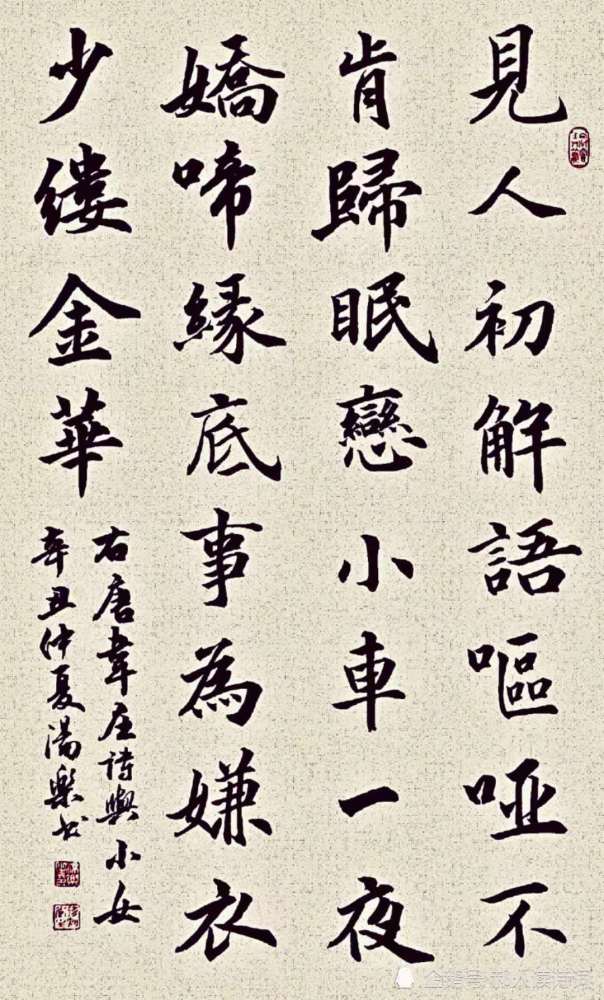 見人初解語嘔哑不
肯歸眠戀小車一夜
嬌啼緣底事為嫌衣
少缕金華
右唐韋庄诗與小女
辛丑仲夏湯樂书